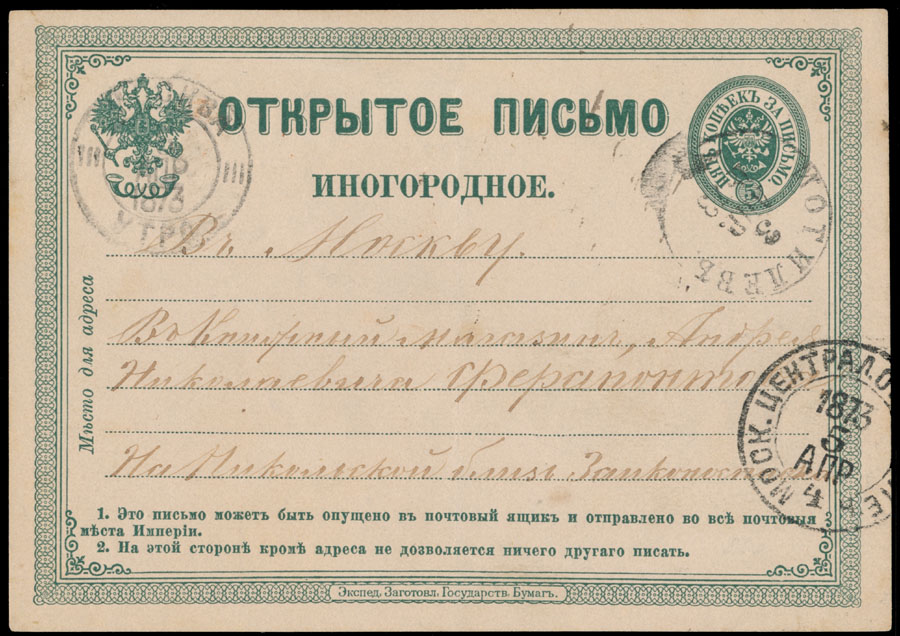 ОТКРЫТОЕ ПИСЬМО
ИНОГОРОДНОЕ.
ПЯТЬ КОПѢЕКЪ ЗА ПИСЬМО.
5
1873
УТРО
МОГИЛЕВЪ
Въ Москву.
Мѣсто для адреса
Въ Книжный магазинъ, Андрея
Николаевича Ферапонтова
На Никольской близь
МОСК. ЦЕНТРАЛ
1873
АПР
4
1. Это письмо можетъ быть опущено въ почтовый ящикъ и отправлено во всѣ почтовыя
мѣста Имперіи.
2. На этой сторонѣ кромѣ адреса не дозволяется ничего другаго писать.
Экспед. Заготовл. Государств. Бумагъ.